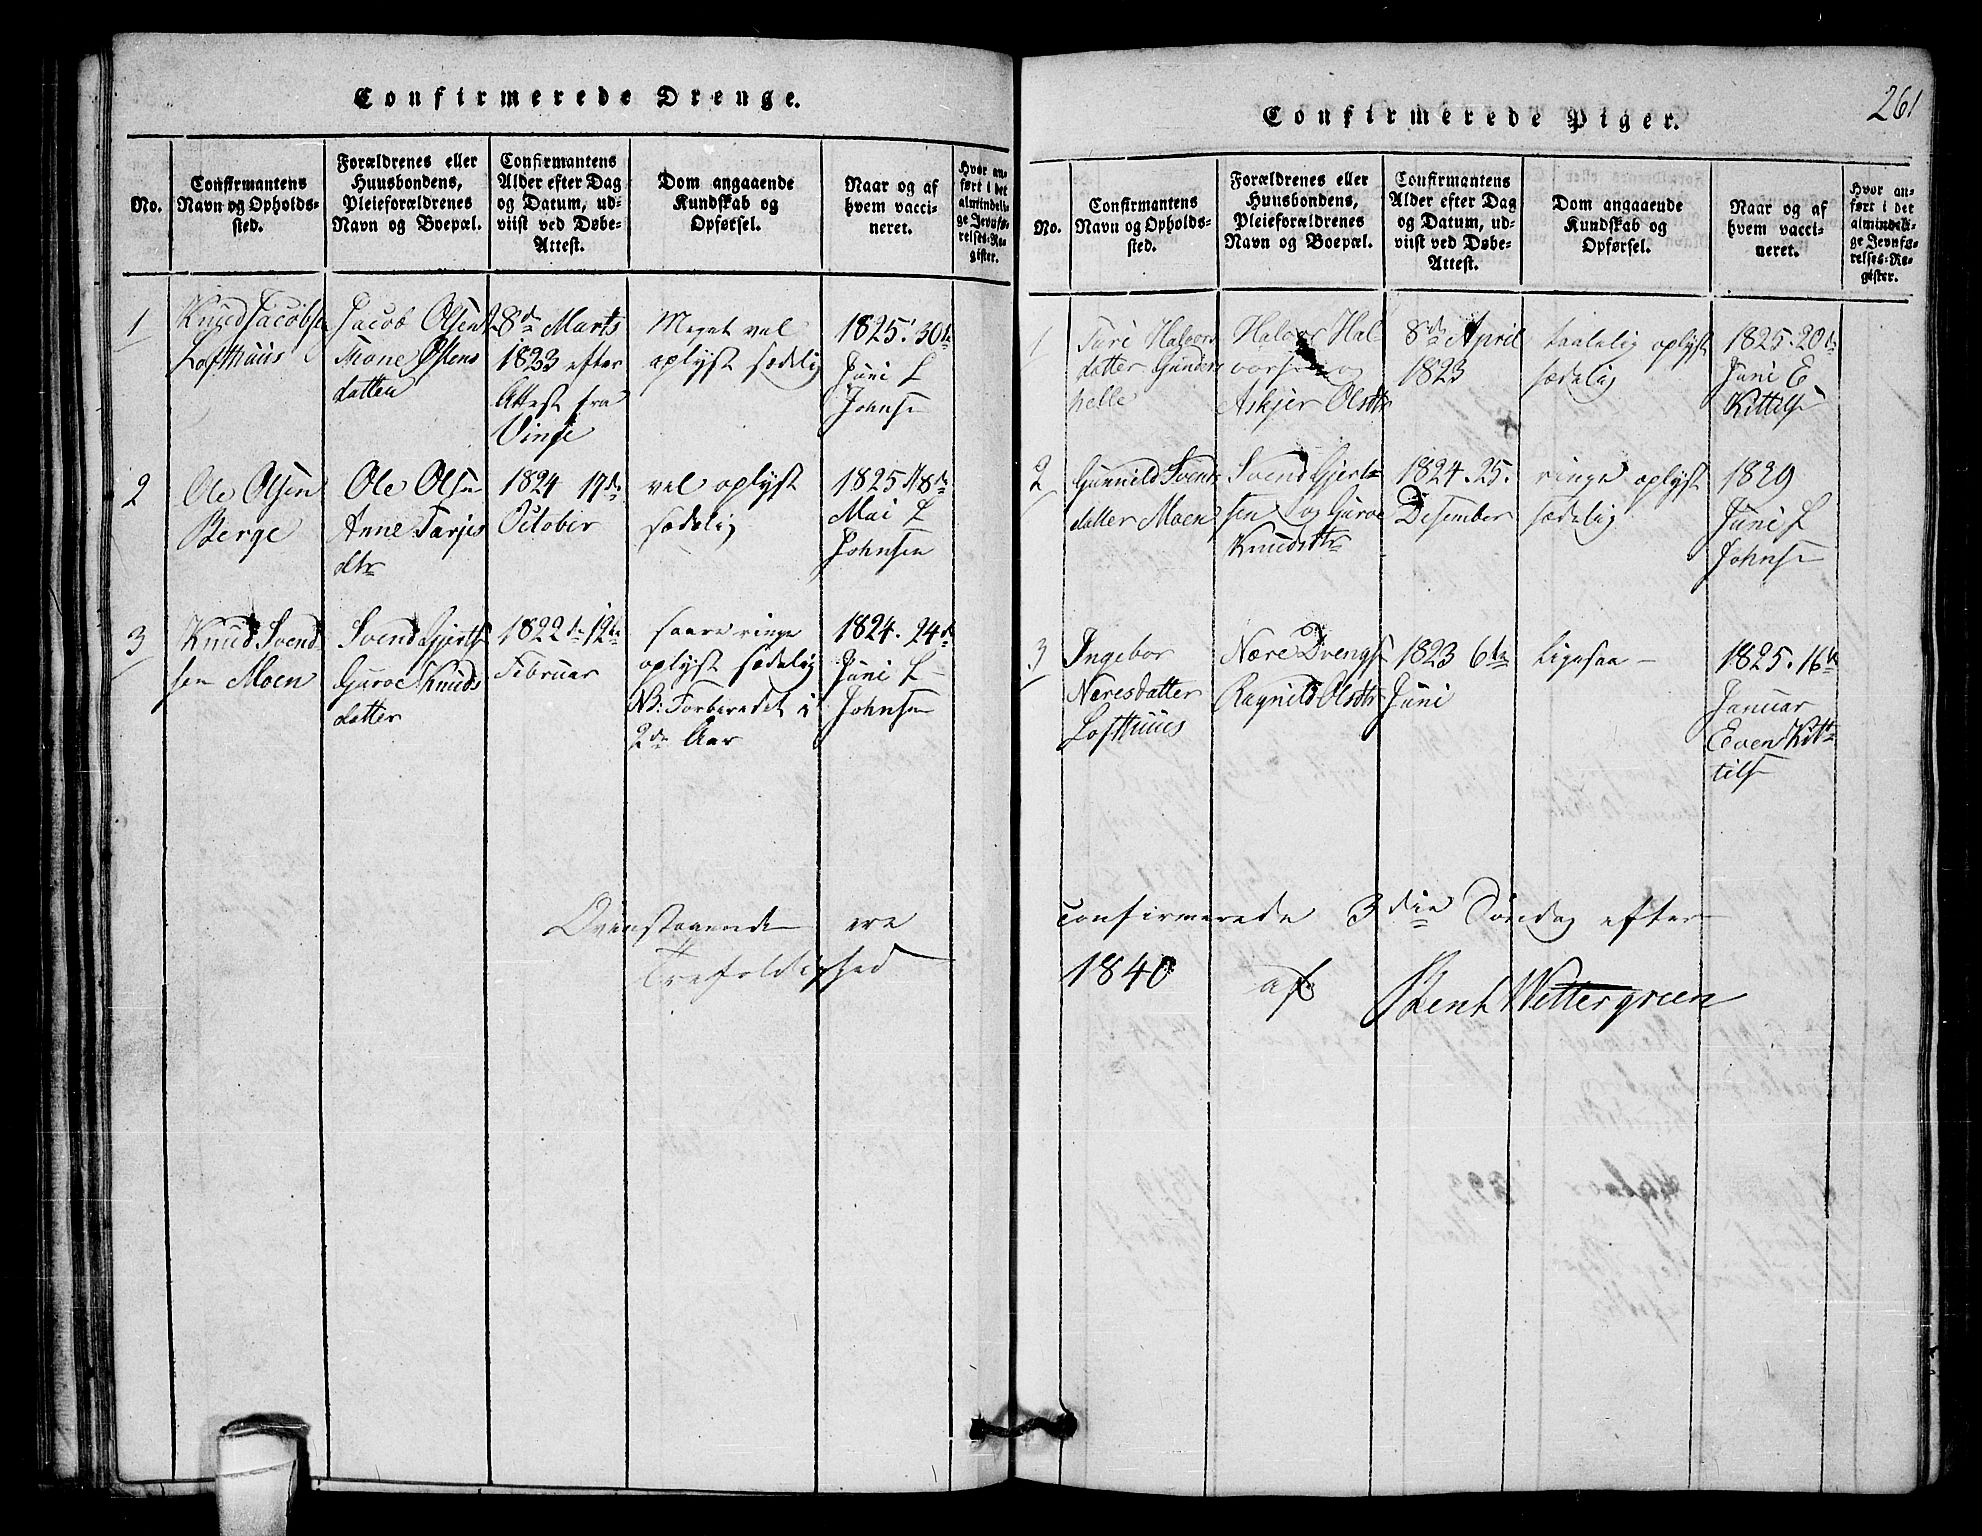 Confirmerede Drenge.
No.
Confirmantens
Navn og Opholds-
sted.
Forældrenes eller
Huusbondens,
Pleieforældrenes
Navn og Boepæl.
Confirmantens
Alder efter Dag
og Datum, ud-
viist ved Døbe-
Attest.
Dom angaaende
Kundskab og
Opførsel.
Naar og af
hvem vacci-
neret.
Hvor an-
ført i det
almindeli-
ge Jevnfø-
relses-Re-
gister.
1
Knud Jacobsen
Lofthuus
Jacob Olsen
Tone Østens
datter
8de Marts
1823 efter
Attest fra
Vinje
Meget vel
oplyst sædelig
1825. 30te
Juni L
Johnsen
2
Ole Olsen
Berge
Ole Olsen
Anne Tarjes
dtr
1824 19de
October
vel oplyst
sædelig
1825 18de
Mai L
Johnsen
3
Knud Svend
sen Moen
Svend Gjerts
Guroe Knuds
datter
1822 12te
Februar
saare ringe
oplyst sædelig
NB: Forberedet i
2de Aar
1824. 24de
Juni L
Johnsen
Ovenstaaende ere
Trefoldighed
261
Confirmerede Piger.
No.
Confirmantens
Navn og Opholds-
sted.
Forældrenes eller
Huusbondens,
Pleieforældrenes
Navn og Boepæl.
Confirmantens
Alder efter Dag
og Datum, ud-
viist ved Døbe-
Attest.
Dom angaaende
Kundskab og
Opførsel.
Naar og af
hvem vacci-
neret.
Hvor an-
ført i det
almindeli-
ge Jevnfø-
relses-Re-
gister.
1
Turi Halvors
datter Gunders
helle
Halvor Hal-
vorsen og
Askjer Olsdtr
8de April
1823
taalelig oplyst
sædelig
1825. 20de
Juni E
Kittels
2
Gunnild Svends
datter Moen
Svend Gjert-
sen og Guroe
Knudsdtr
1824. 25.
Desember
ringe oplyst
sædelig
1829
Juni L
Johnsen
3
Ingebor
Næresdatter
Lofthuus
Nære Drengs
Ragnild Olsdtr
1823 6te
Juni
ligesaa –
1825. 16te
Januar
Even Kit-
tils
confirmerede 3die Søndag efter
1840 af Stenh Wettergreen